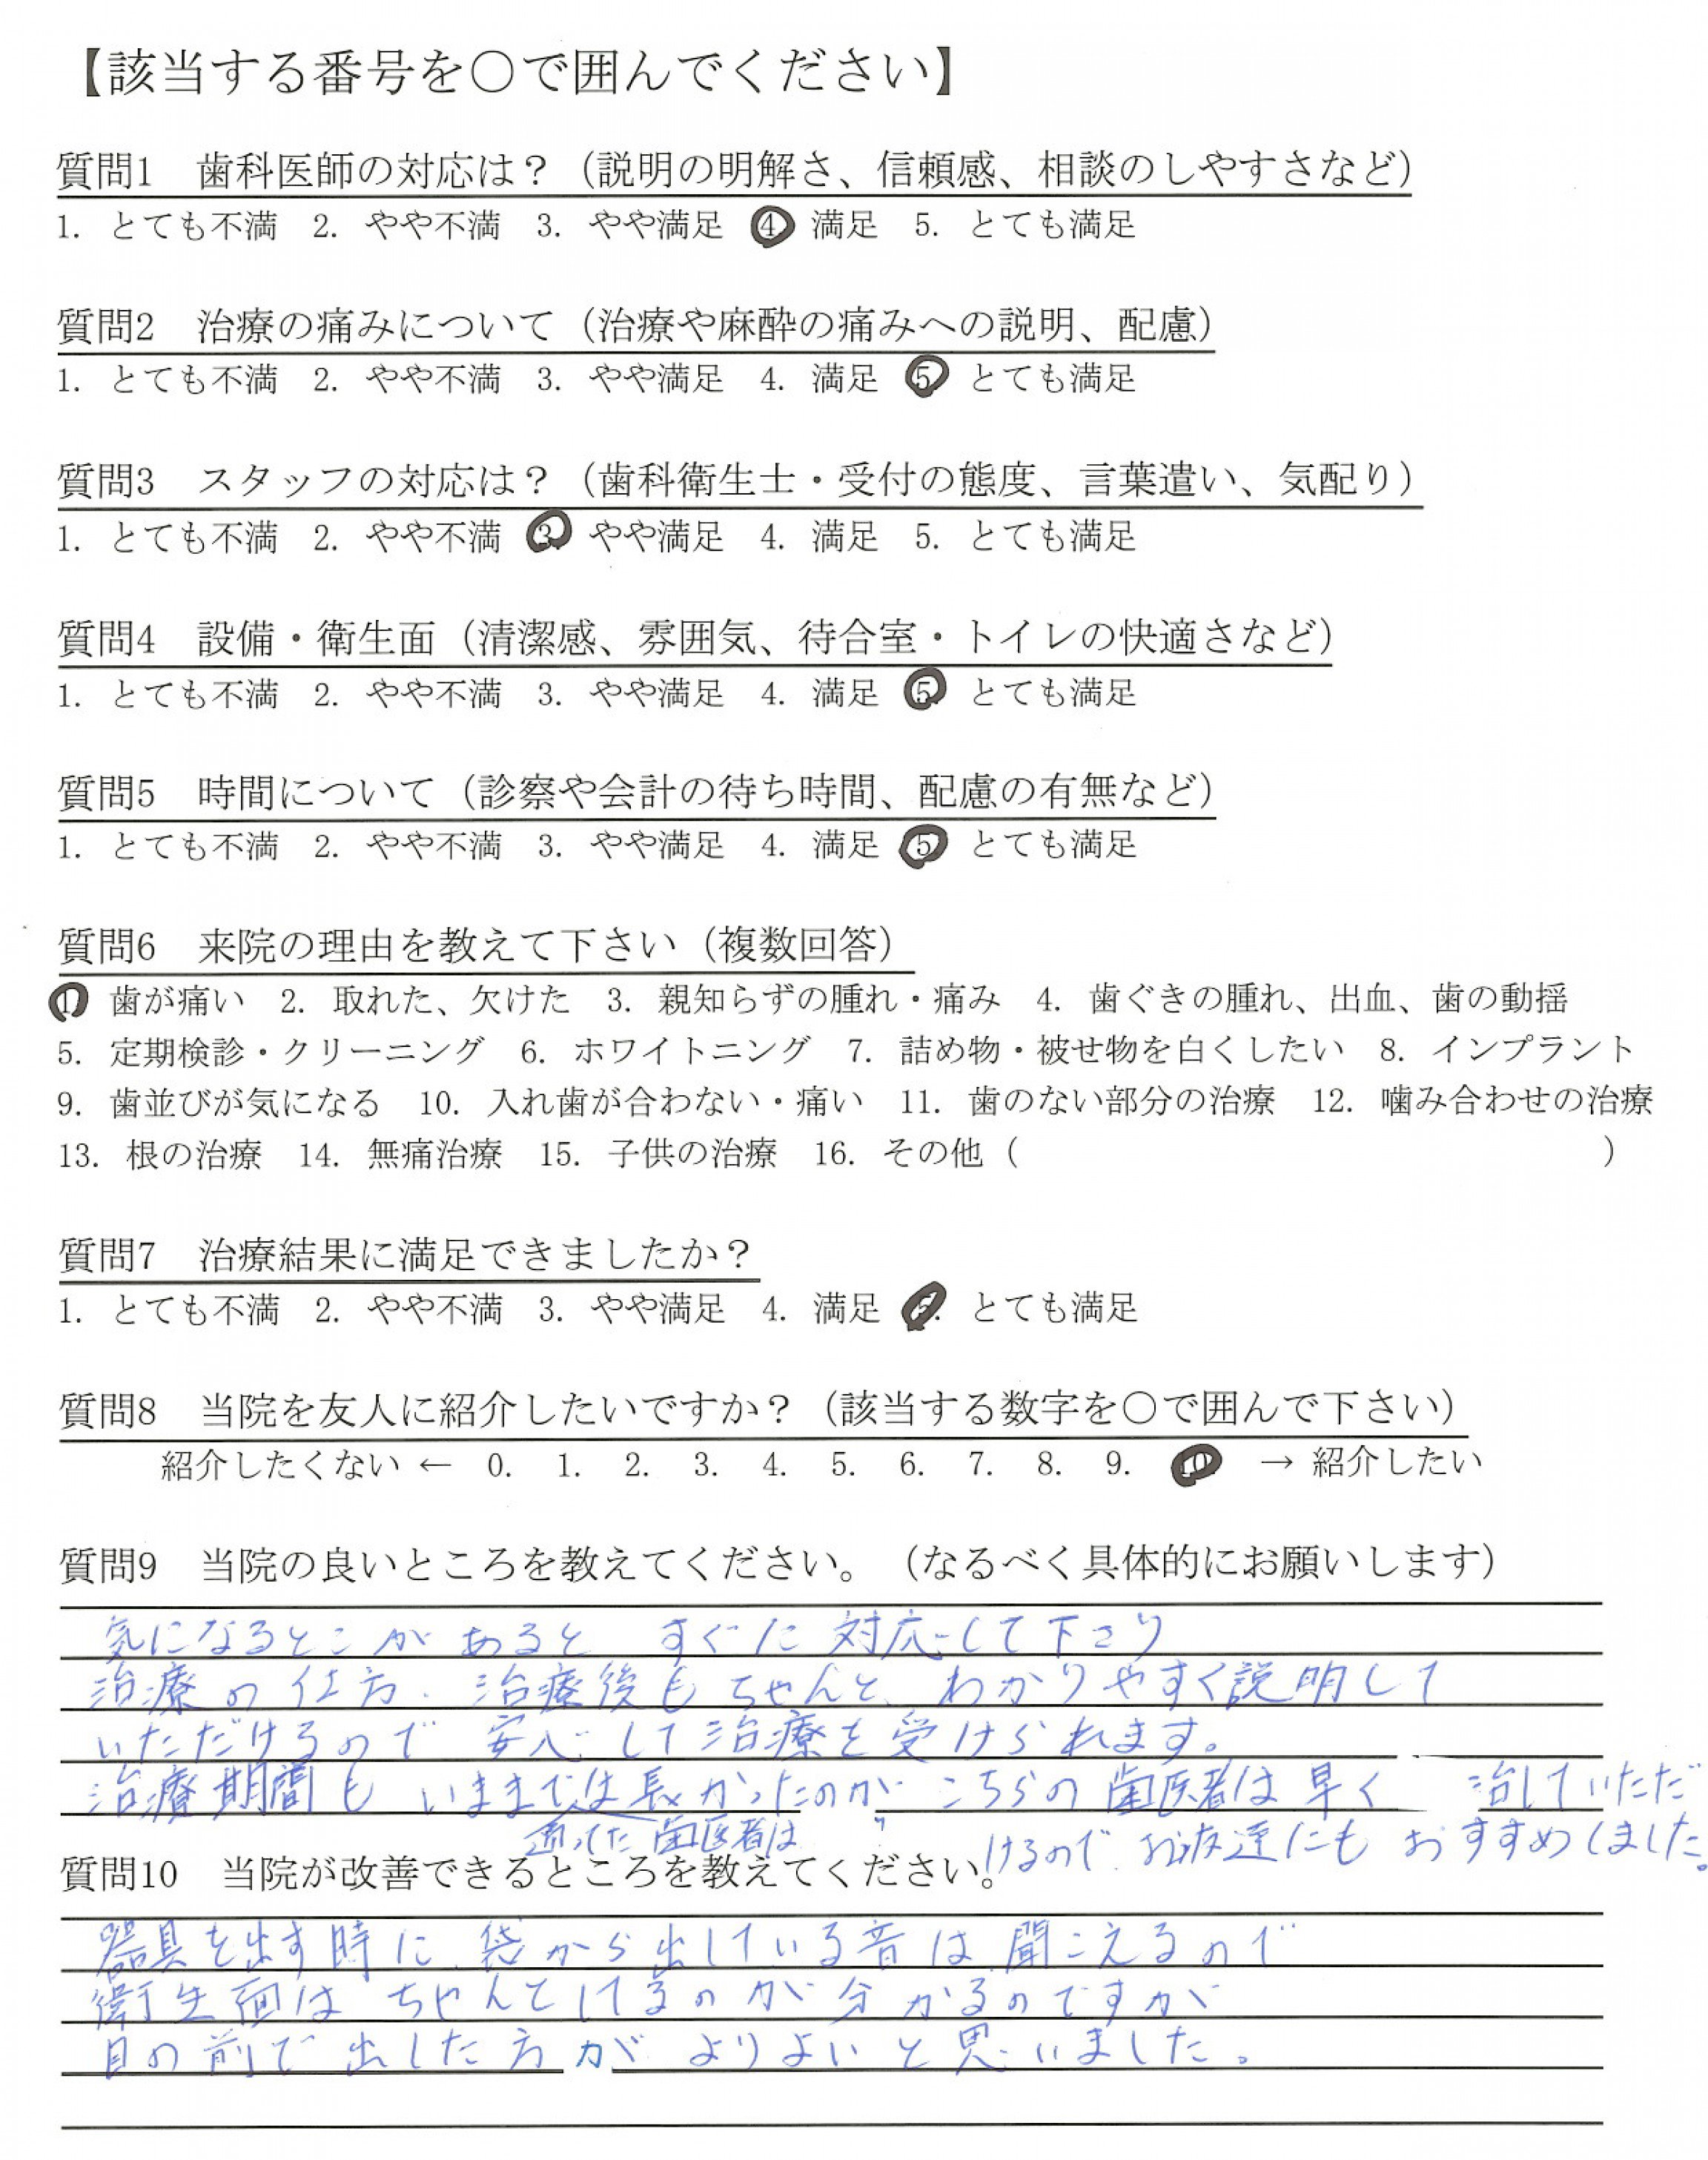 【該当する番号を〇で囲んでください】
質問1　歯科医師の対応は？（説明の明解さ、信頼感、相談のしやすさなど）
1. とても不満　2. やや不満　3. やや満足　4　満足　5. とても満足
質問2　治療の痛みについて（治療や麻酔の痛みへの説明、配慮）
1. とても不満　2. やや不満　3. やや満足　4. 満足　5　とても満足
質問3　スタッフの対応は？（歯科衛生士・受付の態度、言葉遣い、気配り）
1. とても不満　2. やや不満　3.　やや満足　4. 満足　5. とても満足
質問4　設備・衛生面（清潔感、雰囲気、待合室・トイレの快適さなど）
1. とても不満　2. やや不満　3. やや満足　4. 満足　5　とても満足
質問5　時間について（診察や会計の待ち時間、配慮の有無など）
1. とても不満　2. やや不満　3. やや満足　4. 満足　5　とても満足
質問6　来院の理由を教えて下さい（複数回答）
1　歯が痛い　2. 取れた、欠けた　3. 親知らずの腫れ・痛み　4. 歯ぐきの腫れ、出血、歯の動揺
5. 定期検診・クリーニング　6. ホワイトニング　7. 詰め物・被せ物を白くしたい　8. インプラント
9. 歯並びが気になる　10. 入れ歯が合わない・痛い　11. 歯のない部分の治療　12. 噛み合わせの治療
13. 根の治療　14. 無痛治療　15. 子供の治療　16. その他（　　　　　　　　　　）
質問7　治療結果に満足できましたか？
1. とても不満　2. やや不満　3. やや満足　4. 満足　5.　とても満足
質問8　当院を友人に紹介したいですか？（該当する数字を〇で囲んで下さい）
紹介したくない ← 0.　1.　2.　3.　4.　5.　6.　7.　8.　9.　10　→ 紹介したい
質問9　当院の良いところを教えてください。（なるべく具体的にお願いします）
気になるとこがあると すぐに対応して下さり
治療の仕方、治療後もちゃんと、わかりやすく説明して
いただけるので 安心して治療を受けられます。
治療期間も いままでは長かったのが こちらの歯医者は早く 治していただ
通ってた歯医者は
けるので お友達にも おすすめしました。
質問10　当院が改善できるところを教えてください。
器具を出す時に 袋から出している音は聞こえるので
衛生面は ちゃんとしてるのが分かるのですが
目の前で出した方が よりよいと思いました。